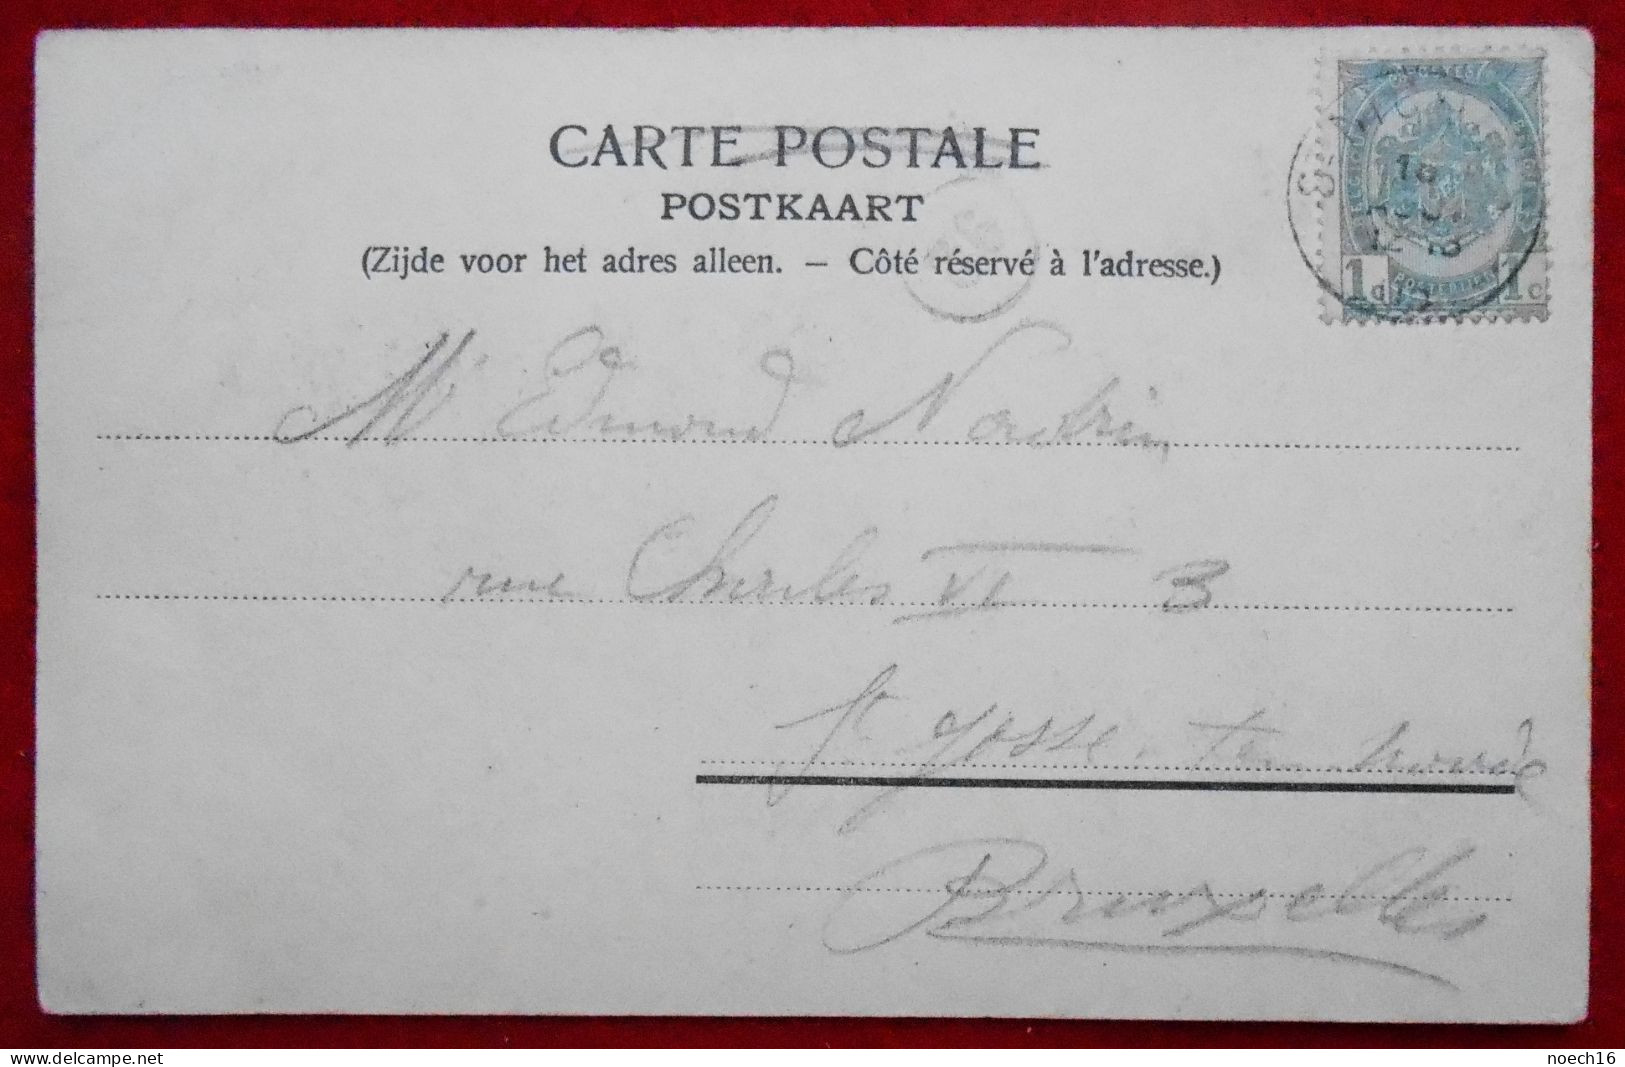 CARTE POSTALE
POSTKAART
(Zijde voor het adres alleen. — Côté réservé à l'adresse.)
Mr Edmond
rue Charles VI 3
St Josse-ten-noode
Bruxelles
1c 1c
noech16